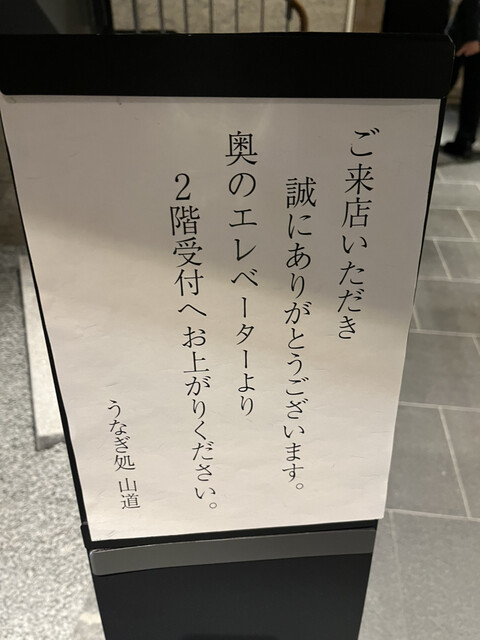 ご来店いただき
誠にありがとうございます。
奥のエレベーターより
2階受付へお上がりください。
うなぎ処 山道